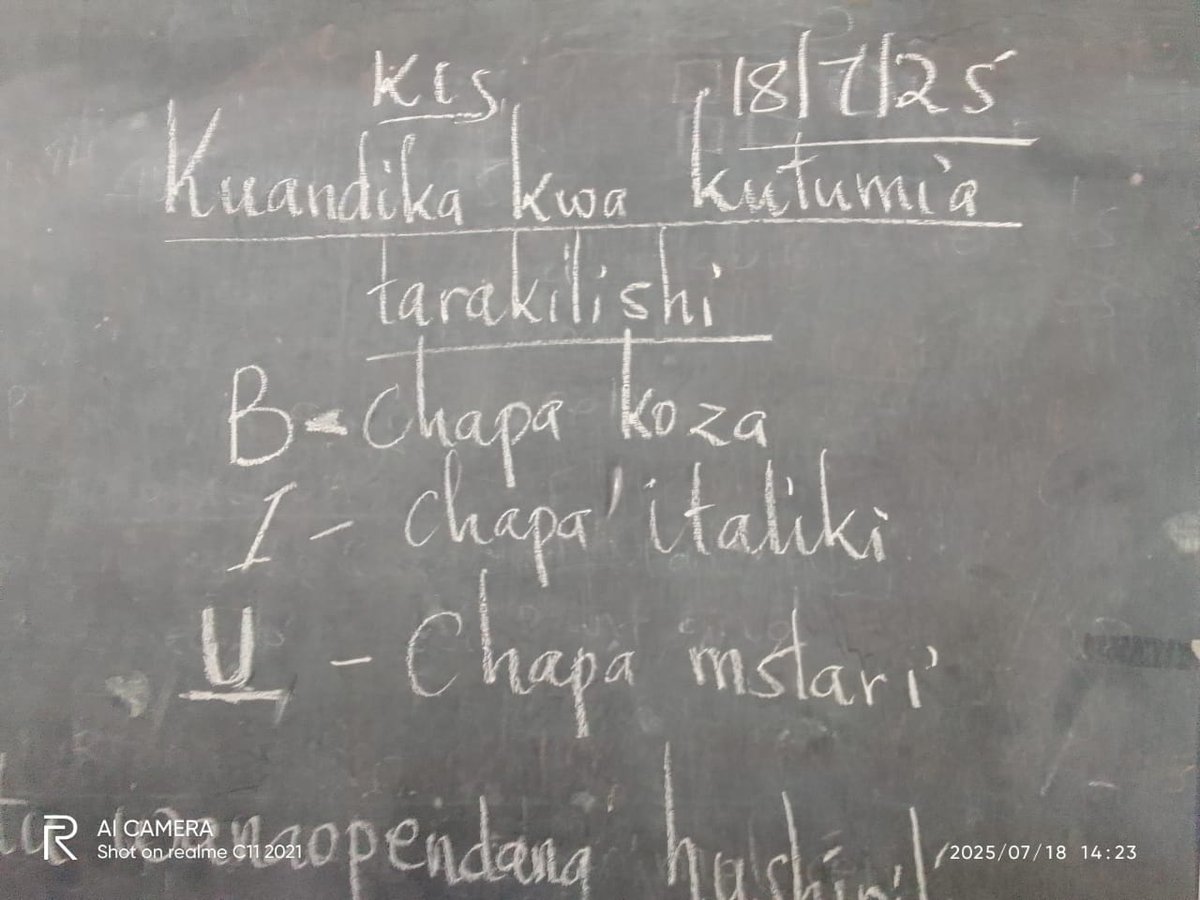 KIS 18/7/25
Kuandika kwa kutumia
tarakilishi
B - Chapa koza
I - Chapa italiki
U - Chapa mstari
wanaopendana
AI CAMERA
Shot on realme C11 2021
2025/07/18 14:23